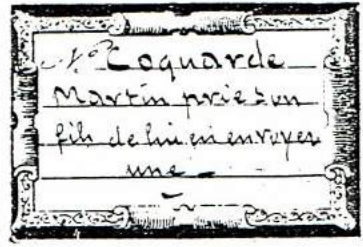 No Coquarde
Martin prie son
fils de lui en envoyer
une